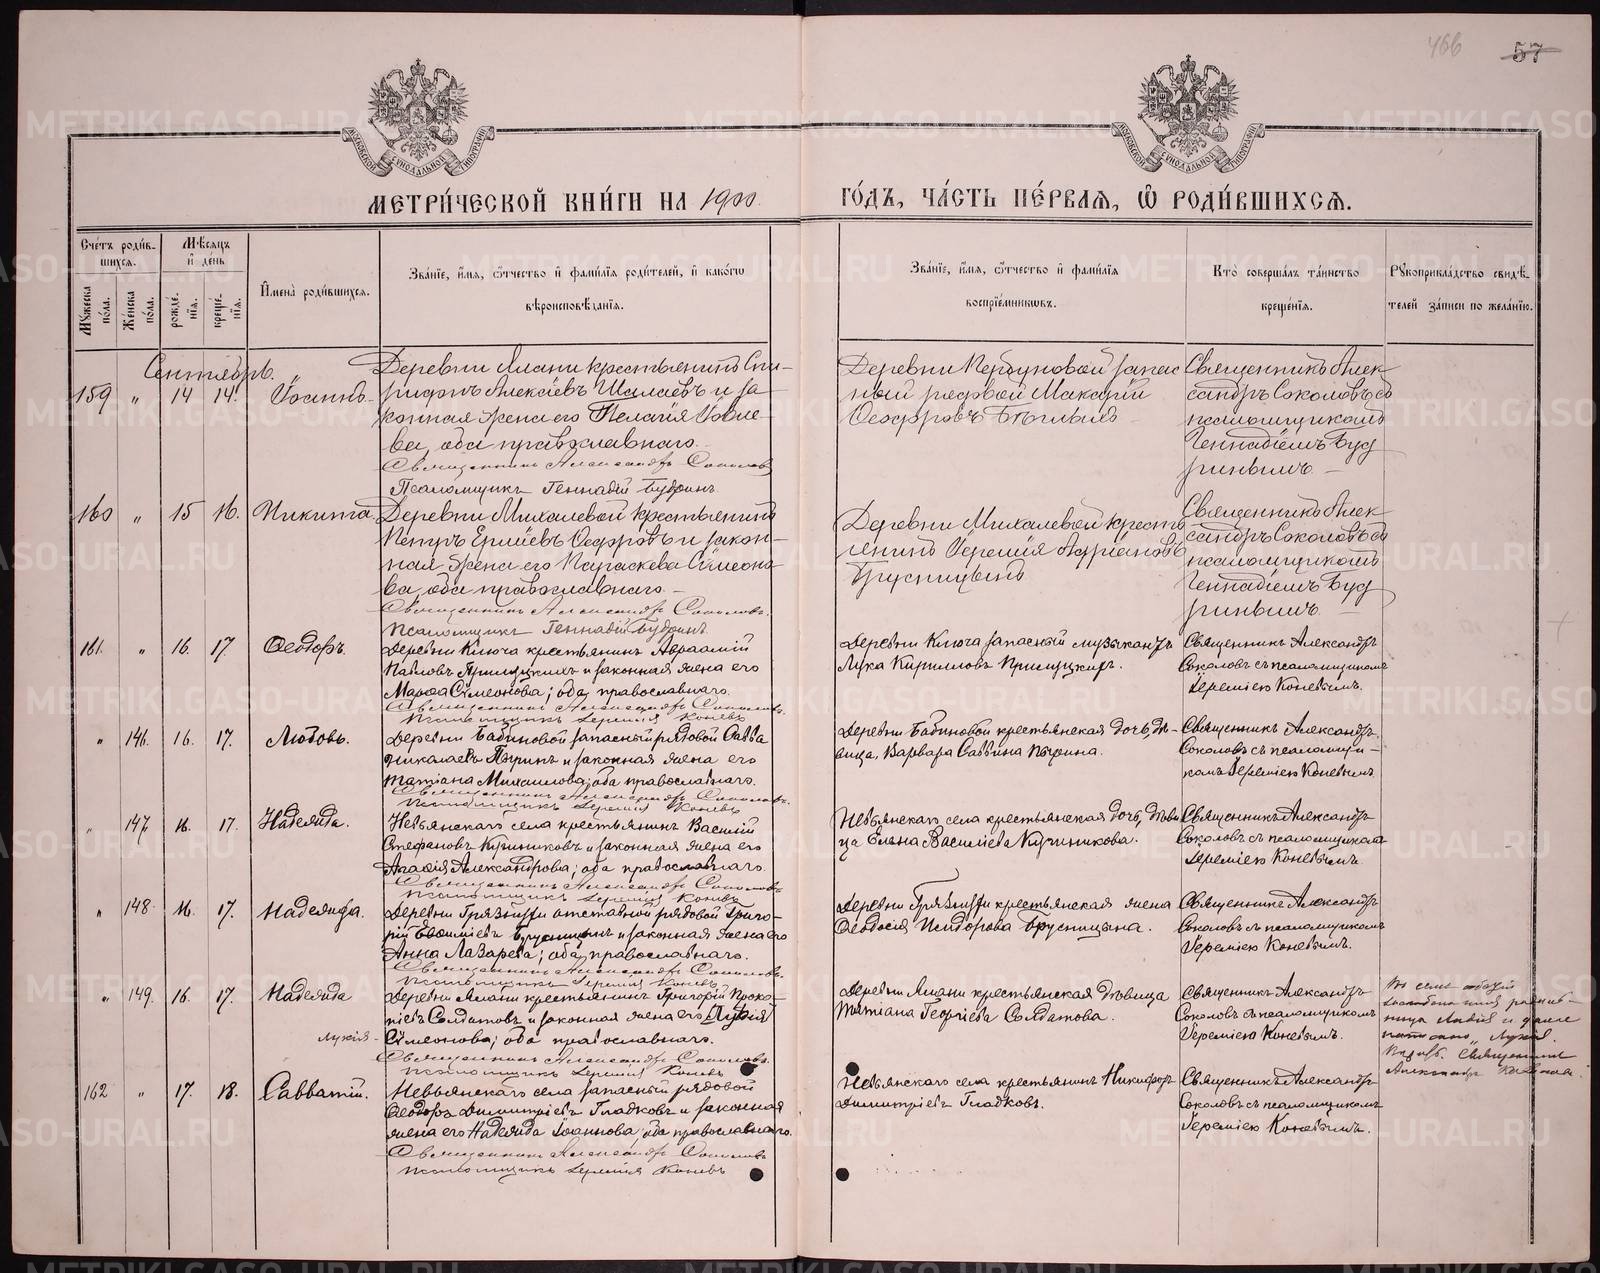 466 57
МОСКОВСКОЙ СѴНОДАЛЬНОЙ ТИПОГРАФІИ
МОСКОВСКОЙ СѴНОДАЛЬНОЙ ТИПОГРАФІИ
МЕТРИ́ЧЕСКОЙ КНИ́ГИ НА 1900
ГО́ДЪ, ЧА́СТЬ ПЕ́РВАѦ, Ѡ҆ РОДИ́ВШИХСѦ.
Сче́тъ роди́вшихсѧ.
Мꙋ́жеска по́ла.
Же́нска по́ла.
Мѣ́сѧцъ и҆ де́нь
рожде́нїѧ.
креще́нїѧ.
И҆мена̀ роди́вшихсѧ.
Зва́нїе, и҆́мѧ, ѻ҆́тчество и҆ фами́лїѧ роди́телей, и҆ како́гѡ
вѣроисповѣ́данїѧ.
Зва́нїе, и҆́мѧ, ѻ҆́тчество и҆ фами́лїѧ
воспрїе́мникѡвъ.
Кто̀ соверша́лъ та́инство
креще́нїѧ.
Рꙋкоприкла́дство свидѣ́-
телей за́писи по жела́нїю.
Сентябрь.
159 „ 14 14. Іоаннъ.
Деревни Ялани крестьянинъ Спи-
ридонъ Алексіевъ Шалаевъ и за
конная жена его Пелагія Іовле-
ва, оба православнаго.
Священникъ Александръ Соколовъ
Псаломщикъ Геннадій Будринъ
Деревни запас
ный рядовой Макарій
Ѳеодоровъ
Священникъ Алек-
сандръ Соколовъ съ
псаломщикомъ
Геннадіемъ Буд
ринымъ
160 „ 15 16. Никита
Деревни Михалевой крестьянинъ
Петръ Ѳеодоровъ и закон-
ная жена его Параскева Сѵмеоно-
ва, оба православнаго.
Священникъ Александръ Соколовъ.
Псаломщикъ Геннадій Будринъ
Деревни Михалевой кресть
янинъ Іеремія Адріановъ
Брусницынъ
Священникъ Алек-
сандръ Соколовъ съ
псаломщикомъ
Геннадіемъ Буд
ринымъ.
161. „ 16. 17. Ѳеодоръ.
Деревни Ключа крестьянинъ Авраамій
Павловъ Прилуцкихъ и законная жена его
Марѳа Сѵмеонова; оба православнаго.
Священникъ Александръ Соколовъ.
Псаломщикъ Іеремія Коневъ
Деревни Ключа запасный музыкантъ
Лука Кирилловъ Прилуцкихъ.
Священникъ Александръ
Соколовъ съ псаломщикомъ
Іереміею Коневымъ.
„ 146. 16. 17. Любовь.
Деревни Бабиновой запасный рядовой Савва
Николаевъ Пыринъ и законная жена его
Татіана Михаилова; оба православнаго.
Священникъ Александръ Соколовъ.
Псаломщикъ Іеремія Коневъ
Деревни Бабиновой крестьянская дочь, дѣ-
вица, Варвара Саввина Пырина.
Священникъ Александръ
Соколовъ съ псаломщи-
комъ Іереміею Коневымъ.
„ 147. 16. 17. Надежда.
Невьянскаго села крестьянинъ Василій
Стефановъ и законная жена его
Агафія Александрова; оба православнаго.
Священникъ Александръ Соколовъ
Псаломщикъ Іеремія Коневъ
Невьянскаго села крестьянская дочь, дѣви
ца Елена Василіева
Священникъ Александръ
Соколовъ съ псаломщикомъ
Іереміею Коневымъ.
„ 148. 16. 17. Надежда.
Деревни Грязнухи отставной рядовой Григо-
рій Евѳиміевъ Брусницынъ и законная жена его
Анна Лазарева; оба православнаго.
Священникъ Александръ Соколовъ.
Псаломщикъ Іеремія Коневъ.
Деревни Грязнухи крестьянская жена
Ѳеодосія Исидорова Брусницына.
Священникъ Александръ
Соколовъ съ псаломщикомъ
Іереміею Коневымъ.
„ 149. 16. 17. Надежда
Деревни Ялани крестьянинъ Григорій Проко-
піевъ Солдатовъ и законная жена его Лукія
Лукія - Сѵмеонова; оба православнаго.
Священникъ Александръ Соколовъ.
Псаломщикъ Іеремія Коневъ
Деревни Ялани крестьянская дѣвица
Татіана Георгіева Солдатова.
Священникъ Александръ
Соколовъ съ псаломщикомъ
Іереміею Коневымъ.
Въ семъ
имя
ница Лидія и
„Лукія".
Священникъ
Александръ
162 „ 17. 18. Савватій.
Невьянскаго села запасный рядовой
Ѳеодоръ Димитріевъ Гладковъ и законная
жена его Надежда Іоаннова; оба православнаго.
Священникъ Александръ Соколовъ
Псаломщикъ Іеремія Коневъ
Невьянскаго села крестьянинъ Никифоръ
Димитріевъ Гладковъ.
Священникъ Александръ
Соколовъ съ псаломщикомъ
Іереміею Коневымъ.
METRIKI.GASO-URAL.RU